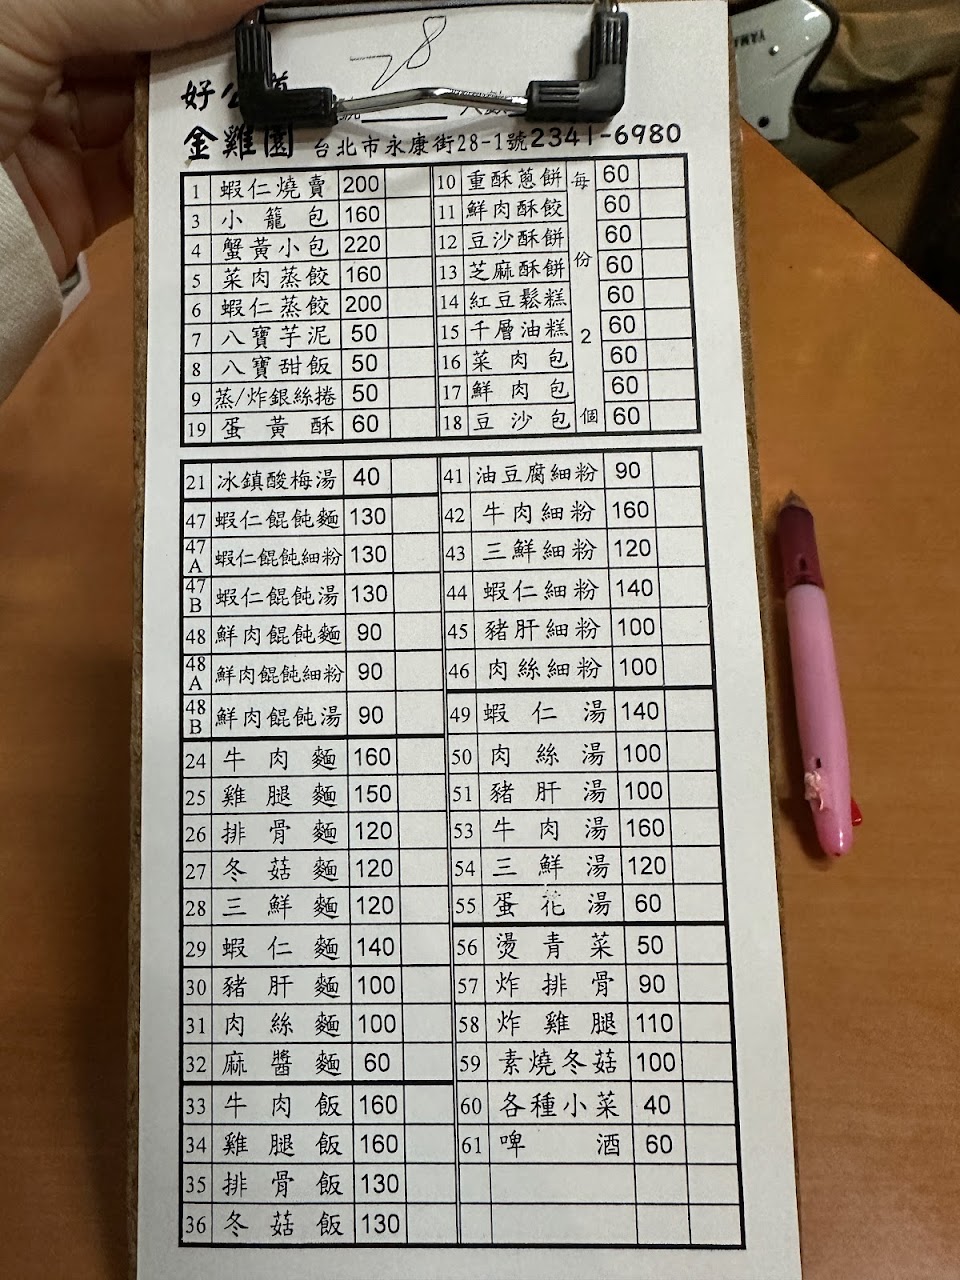 28
好公道
金雞園 台北市永康街28-1號2341-6980
1 蝦仁燒賣 200
3 小籠包 160
4 蟹黃小包 220
5 菜肉蒸餃 160
6 蝦仁蒸餃 200
7 八寶芋泥 50
8 八寶甜飯 50
9 蒸/炸銀絲捲 50
19 蛋黃酥 60
10 重酥蔥餅 60
11 鮮肉酥餃 60
12 豆沙酥餅 60
13 芝麻酥餅 60
14 紅豆鬆糕 60
15 千層油糕 60
16 菜肉包 60
17 鮮肉包 60
18 豆沙包 60
每份2個
21 冰鎮酸梅湯 40
47 蝦仁餛飩麵 130
47A 蝦仁餛飩細粉 130
47B 蝦仁餛飩湯 130
48 鮮肉餛飩麵 90
48A 鮮肉餛飩細粉 90
48B 鮮肉餛飩湯 90
24 牛肉麵 160
25 雞腿麵 150
26 排骨麵 120
27 冬菇麵 120
28 三鮮麵 120
29 蝦仁麵 140
30 豬肝麵 100
31 肉絲麵 100
32 麻醬麵 60
33 牛肉飯 160
34 雞腿飯 160
35 排骨飯 130
36 冬菇飯 130
41 油豆腐細粉 90
42 牛肉細粉 160
43 三鮮細粉 120
44 蝦仁細粉 140
45 豬肝細粉 100
46 肉絲細粉 100
49 蝦仁湯 140
50 肉絲湯 100
51 豬肝湯 100
53 牛肉湯 160
54 三鮮湯 120
55 蛋花湯 60
56 燙青菜 50
57 炸排骨 90
58 炸雞腿 110
59 素燒冬菇 100
60 各種小菜 40
61 啤酒 60